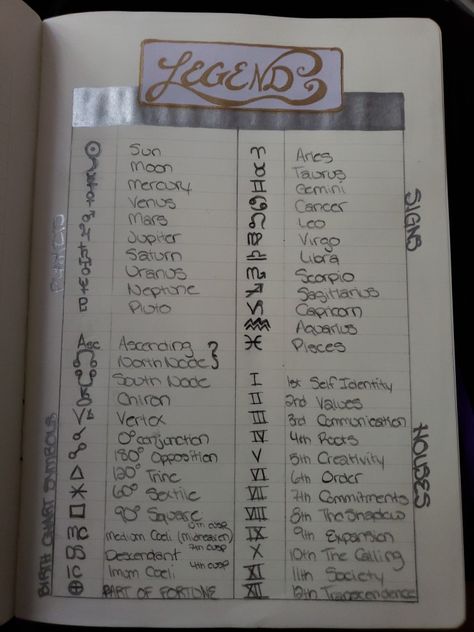 LEGEND
PLANETS
Sun
Moon
Mercury
Venus
Mars
Jupiter
Saturn
Uranus
Neptune
Pluto
BIRTH CHART SYMBOLS
Asc Ascending
North Node
South Node
Chiron
Vertex
0° conjunction
180° Opposition
120° Trine
60° Sextile
90° Square
Medium Coeli (midheaven) 10th cusp
Descendant 7th cusp
Imum Coeli 4th cusp
PART OF FORTUNE
SIGNS
♈ Aries
♉ Taurus
♊ Gemini
♋ Cancer
♌ Leo
♍ Virgo
♎ Libra
♏ Scorpio
♐ Sagittarius
♑ Capricorn
♒ Aquarius
♓ Pisces
HOUSES
I 1st Self Identity
II 2nd Values
III 3rd Communication
IV 4th Roots
V 5th Creativity
VI 6th Order
VII 7th Commitments
VIII 8th The Shadow
IX 9th Expansion
X 10th The Calling
XI 11th Society
XII 12th Transcendence